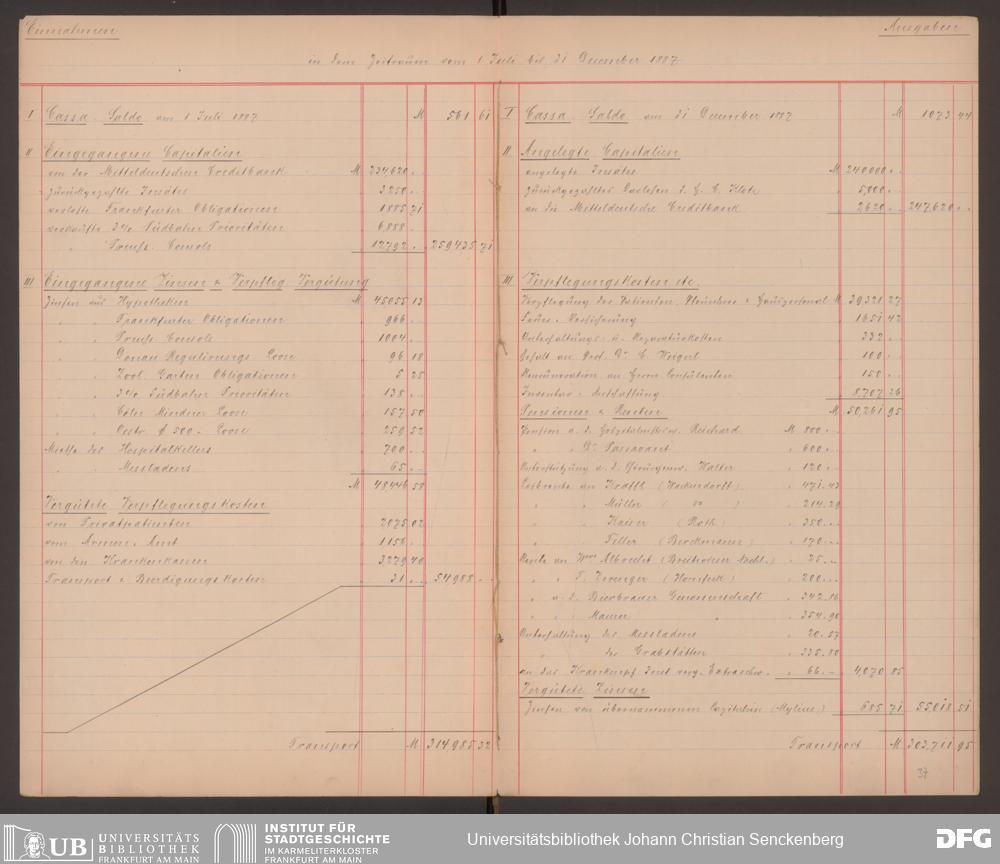 Einnahmen
Ausgaben
in dem Zeitraum vom 1 Juli bis 31 December 1887
I Cassa Saldo am 1 Juli 1887 M 561 61
II Eingegangene Capitalien
von der Mitteldeutschen Creditbank M 234620 . .
zurückgezahlte Insätze 3250 . .
verloste Frankfurter Obligationen 1885 71
verkaufte 3% Südbahn Prioritäten 6888 .
" Preuss. Consols 12792 . . 259435 71
III Eingegangene Zinsen & Verpfleg. Vergütung
Zinsen aus Hypotheken M 45055 13
" " Frankfurter Obligationen 966 . .
" " Preuss. Consols 1004 . .
" " Donau Regulierungs Loose 96 18
" " Zool. Garten Obligationen 5 25
" " 3% Südbahn Prioritäten 138 . .
" " Cöln Mindener Loose 157 50
" " Oestr. f 500.- Loose 259 52
Miethe des Hospitalkellers 700 . .
" " Messladens 65 . .
M 48,446 58
Vergütete Verpflegungskosten
von Privatpatienten 2075 02
vom Armen-Amt 1156 . .
von den Krankenkassen 3279 40
Transport & Beerdigungskosten 31 . . 54988 . .
Transport M 314985 32
I Cassa Saldo am 31 December 1887 M 1073 44
II Angelegte Capitalien
angelegte Insätze M 240000 . .
zurückgezahltes Darlehen d. H. C. Klotz 5,000 . .
an die Mitteldeutsche Creditbank 2620 . . 247,620 . .
III Verpflegungskosten etc.
Verpflegung der Patienten, Pfründner & Hauspersonal M 39,321 27
Feuer-Versicherung 1651 42
Unterhaltungs- u. Reparaturkosten 332 . .
Gehalt an Prof. Dr. C. Weigert 100 . .
Remuneration an Herrn Consulenten 150 . .
Inventar-Anschaffung 8,707 26
Pensionen & Renten M 50,261 95
Pension a. d. Reichard M 800 . .
" " Dr. Passavant " 600 . .
Unterstützung a. d. Walter " 120 . .
Leibrente an Krafft (Weckerdorff) " 471.43
" " Müller ( " ) " 214.29
" " Kaiser (Roth) " 350 . .
" " Feller (Beckmann) " 170 . .
Rente an Albrecht " 25 . .
" " F. Zwenger " 200 . .
" a. d. Bierbrauer Genossenschaft " 342.16
" " Maurer " " 354.90
Unterhaltung des Messladens " 20.57
" der Grabstätten " 335.50
an das " 66.- 4,070 85
Vergütete Zinsen
Zinsen von übernommenen Capitalien (Mylius) 685 71 55,018 51
Transport M 303,711 95
37
UB UNIVERSITÄTS
BIBLIOTHEK
FRANKFURT AM MAIN
INSTITUT FÜR
STADTGESCHICHTE
IM KARMELITERKLOSTER
FRANKFURT AM MAIN
Universitätsbibliothek Johann Christian Senckenberg
DFG